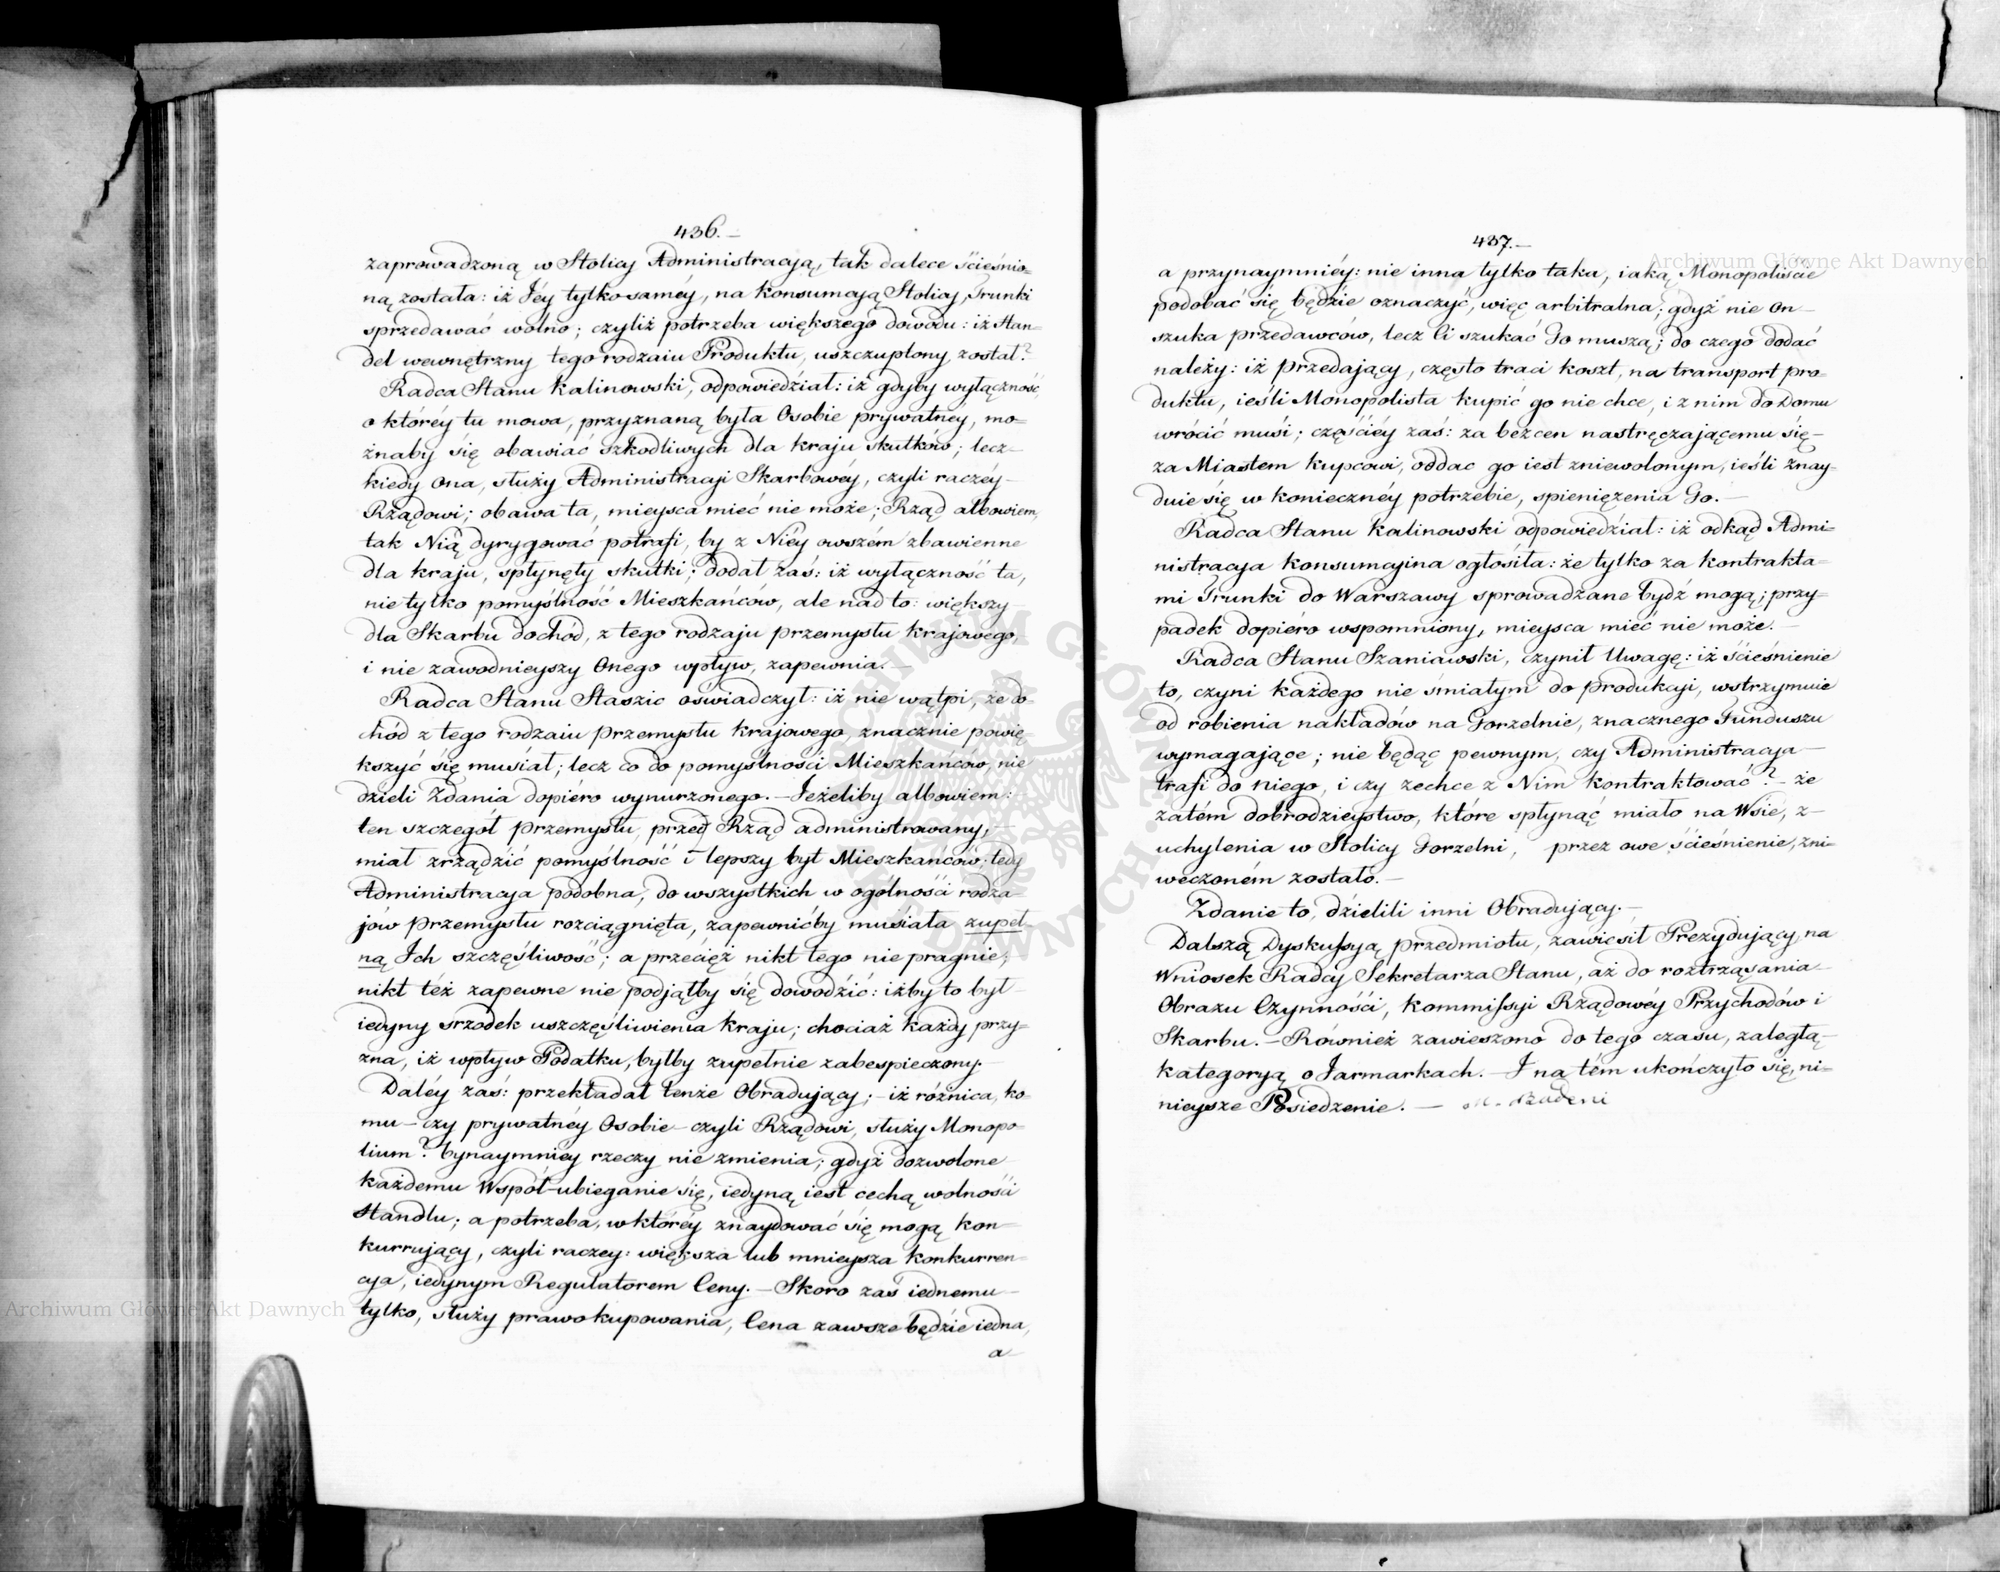 436.—
zaprowadzoną w Stolicy Administracyą, tak dalece ścieśnio=
ną została: iż Jéy tylko saméy, na konsumcyą Stolicy, Trunki
sprzedawać wolno; czyliż potrzeba większego dowodu: iż Han=
del wewnętrzny tego rodzaiu Produktu, uszczuplony został?
Radca Stanu Kalinowski, odpowiedział: iż gdyby wyłączność,
o któréy tu mowa, przyznaną była Osobie prywatnéy, mo=
żnaby się obawiać szkodliwych dla kraju skutków; lecz—
kiedy Ona, służy Administracyi Skarbowéy, czyli raczéy—
Rządowi; obawa ta, mieysca mieć nie może; Rząd albowiem,
tak Nią dyrygować potrafi, by z Niéy owszém zbawienne
dla kraju, spłynęły skutki; dodał zaś: iż wyłączność ta,
nie tylko pomyślność Mieszkańców, ale nad to: większy
dla Skarbu dochód, z tego rodzaju przemysłu krajowego,
i nie zawodnieyszy Onego wpływ, zapewnia.—
Radca Stanu Staszic oświadczył: iż nie wątpi, że do=
chód z tego rodzaiu przemysłu krajowego, znacznie powię
kszyć się musiał; lecz co do pomyślności Mieszkańców, nie
dzieli Zdania dopiéro wynurzonego.— Jeżeliby albowiem:
ten szczegół przemysłu, przez Rząd administrowany,—
miał zrządzić pomyślność i lepszy byt Mieszkańców; tedy
Administracya podobna, do wszystkich w ogólności rodza
jów przemysłu rozciągnięta, zapewnićby musiała zupeł=
ną Ich szczęśliwość; a przecięż nikt tego nie pragnie;
nikt téż zapewne nie podjąłby się dowodzić: iżby to był—
iedyny srzodek uszczęśliwienia kraju; chociaż każdy przy=
zna, iż wpływ Podatku, byłby zupełnie zabespieczony.—
Daléy zaś: przekładał tenże Obradujący;— iż różnica, ko=
mu — czy prywatnéy Osobie — czyli Rządowi, służy Monopo=
lium? bynaymniéy rzeczy nie zmienia; gdyż dozwolone
każdemu Wspól-ubieganie się, iedyną iest cechą wolności
Handlu; a potrzeba, w któréy znaydować się mogą kon=
kurrujący, czyli raczey: większa lub mnieysza konkurren=
cya, iedynym Regulatorem Ceny.— Skoro zaś iednemu—
tylko, służy prawo kupowania, Cena zawsze będzie iedna,
a
437.—
a przynaymniéy: nie inna tylko taka, iaką Monopoliście
podobać się będzie oznaczyć, więc arbitralna; gdyż nie On—
szuka przedawców, lecz Ci szukać Go muszą; do czego dodać
należy: iż przedający, często traci koszt, na transport pro=
duktu, ieśli Monopolista kupić go nie chce, i z nim do Domu
wrócić musi; częściéy zaś: za bezcen nastręczającemu się—
za Miastem kupcowi, oddac go iest zniewolonym, ieśli znay=
duie się w koniecznéy potrzebie, spieniężenia Go.—
Radca Stanu Kalinowski odpowiedział: iż odkąd Admi=
nistracya konsumcyina ogłosiła: że tylko za kontrakta=
mi Trunki do Warszawy sprowadzane bydź mogą; przy=
padek dopiéro wspomniony, mieysca mieć nie może.—
Radca Stanu Szaniawski, czynił Uwagę: iż ścieśnienie
to, czyni każdego nie śmiałym do produkcyi, wstrzymuie
od robienia nakładów na Gorzelnie, znacznego Funduszu
wymagające; nie będąc pewnym, czy Administracya—
trafi do niego, i czy zechce z Nim kontraktować?— że
zatém dobrodzieystwo, które spłynąć miało na Wsie, z—
uchylenia w Stolicy Gorzelni, przez owe ścieśnienie, zni=
weczoném zostało.—
Zdanie to, dzielili inni Obradujący.—
Dalszą Dyskussyą przedmiotu, zawiesił Prezydujący, na
Wniosek Radcy Sekretarza Stanu, aż do roztrząsania
Obrazu Czynności, Kommissyi Rządowéy Przychodów i
Skarbu.— Również zawieszono do tego czasu, zaległą—
kategoryą o Jarmarkach.— I na tém ukończyło się, ni=
nieysze Posiedzenie.—
Archiwum Główne Akt Dawnych
Archiwum Główne Akt Dawnych
ARCHIWUM GŁÓWNE AKT DAWNYCH